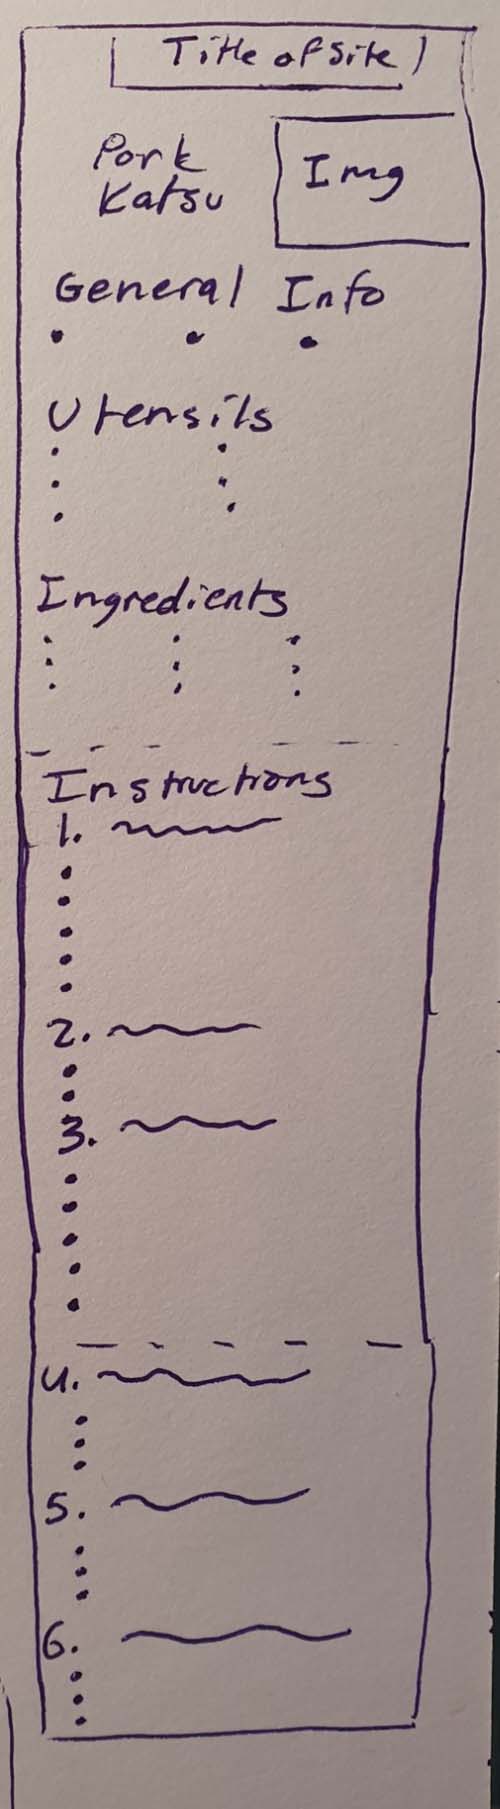 Title of Site
Pork
Katsu
Img
General Info
Utensils
Ingredients
Instructions
1.
2.
3.
4.
5.
6.